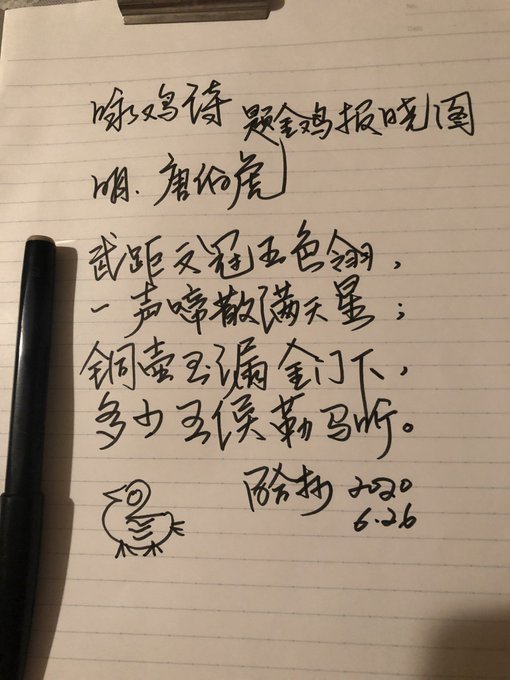 咏鸡诗 题金鸡报晓图
明.唐伯虎
武距文冠五色翎,
一声啼散满天星;
铜壶玉漏金门下,
多少王侯勒马听。
抄 2020
6.26